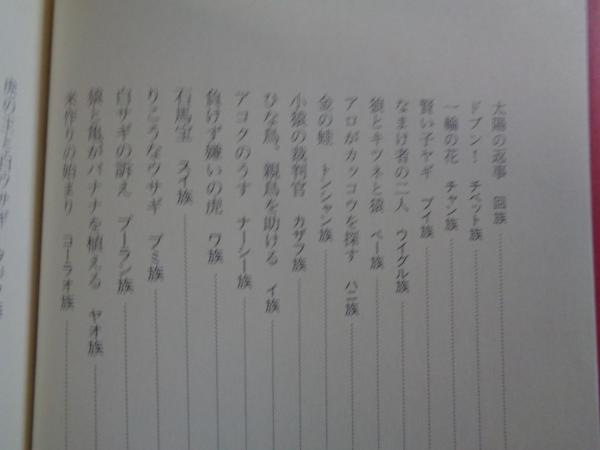 太陽の返事 回族
ドブン！ チベット族
一輪の花 チャン族
賢い子ヤギ プイ族
なまけ者の二人 ウイグル族
狼とキツネと猿 ペー族
アロがカッコウを探す ハニ族
金の蛙 トンシャン族
小猿の裁判官 カザフ族
ひな鳥、親鳥を助ける イ族
アコクのうす ナーシー族
負けず嫌いの虎 ワ族
石馬宝 スイ族
りこうなウサギ プミ族
白サギの訴え プーラン族
猿と亀がバナナを植える ヤオ族
米作りの始まり コーラオ族